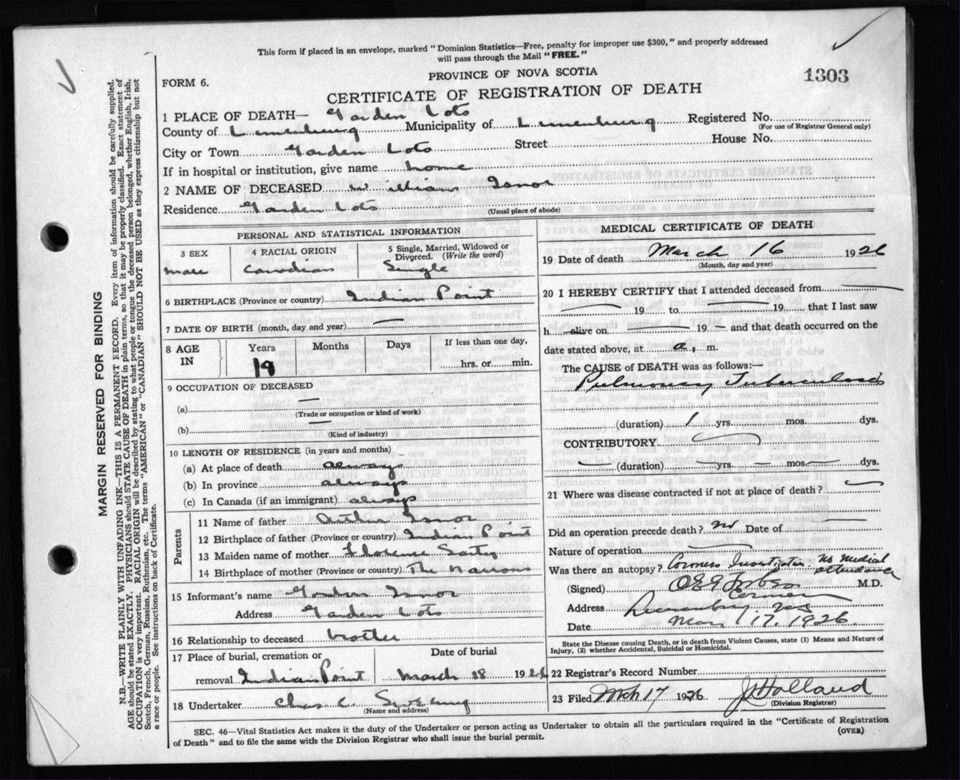 This form if placed in an envelope, marked "Dominion Statistics—Free, penalty for improper use $300," and properly addressed
will pass through the Mail "FREE."
FORM 6.
PROVINCE OF NOVA SCOTIA
1303
CERTIFICATE OF REGISTRATION OF DEATH
1 PLACE OF DEATH— Garden Lots
County of Lunenburg Municipality of Lunenburg Registered No.
(For use of Registrar General only)
City or Town Garden Lots Street House No.
If in hospital or institution, give name home
2 NAME OF DECEASED William Isnor
Residence Garden Lots
(Usual place of abode)
PERSONAL AND STATISTICAL INFORMATION
3 SEX 4 RACIAL ORIGIN 5 Single, Married, Widowed or
Divorced. (Write the word)
male Canadian Single
6 BIRTHPLACE (Province or country) Indian Point
7 DATE OF BIRTH (month, day and year) —
8 AGE IN Years Months Days If less than one day,
19 hrs. or min.
9 OCCUPATION OF DECEASED
(a) —
(Trade or occupation or kind of work)
(b) —
(Kind of industry)
10 LENGTH OF RESIDENCE (in years and months)
(a) At place of death always
(b) In province always
(c) In Canada (if an immigrant) always
Parents
11 Name of father Arthur Isnor
12 Birthplace of father (Province or country) Indian Point
13 Maiden name of mother Florence
14 Birthplace of mother (Province or country) The Narrows
15 Informant's name Isnor
Address Garden Lots
16 Relationship to deceased brother
17 Place of burial, cremation or Date of burial
removal Indian Point March 18 1926
18 Undertaker Chas C.
(Name and address)
MEDICAL CERTIFICATE OF DEATH
19 Date of death March 16 1926
(Month, day and year)
20 I HEREBY CERTIFY that I attended deceased from —
— 19 — to — 19 , that I last saw
h alive on — 19 — and that death occurred on the
date stated above, at a. m.
The CAUSE of DEATH was as follows:—
Pulmonary Tuberculosis
(duration) 1 yrs. mos. dys.
CONTRIBUTORY —
— (duration) — yrs. — mos. — dys.
21 Where was disease contracted if not at place of death? —
Did an operation precede death? no Date of —
Nature of operation —
Was there an autopsy? Coroners Investigation No medical
attendance
(Signed) M.D.
Coroner
Address Lunenburg
Date Mar 17, 1926.
State the Disease causing Death, or in death from Violent Causes, state (1) Means and Nature of
Injury, (2) whether Accidental, Suicidal or Homicidal.
22 Registrar's Record Number
23 Filed Mch 17 1926 Holland
(Division Registrar)
SEC. 46—Vital Statistics Act makes it the duty of the Undertaker or person acting as Undertaker to obtain all the particulars required in the "Certificate of Registration
of Death" and to file the same with the Division Registrar who shall issue the burial permit.
(OVER)
MARGIN RESERVED FOR BINDING
N.B.—WRITE PLAINLY WITH UNFADING INK—THIS IS A PERMANENT RECORD. Every item of information should be carefully supplied.
AGE should be stated EXACTLY. PHYSICIANS should STATE CAUSE OF DEATH in plain terms, so that it may be properly classified. Exact statement of
OCCUPATION is very important. RACIAL ORIGIN will be described by stating to what people or tongue the deceased person belonged, whether English, Irish,
Scotch, French, German, Russian, Ruthenian, etc. The terms "AMERICAN" or "CANADIAN" SHOULD NOT BE USED as they express citizenship but not
a race or people. See instructions on back of Certificate.